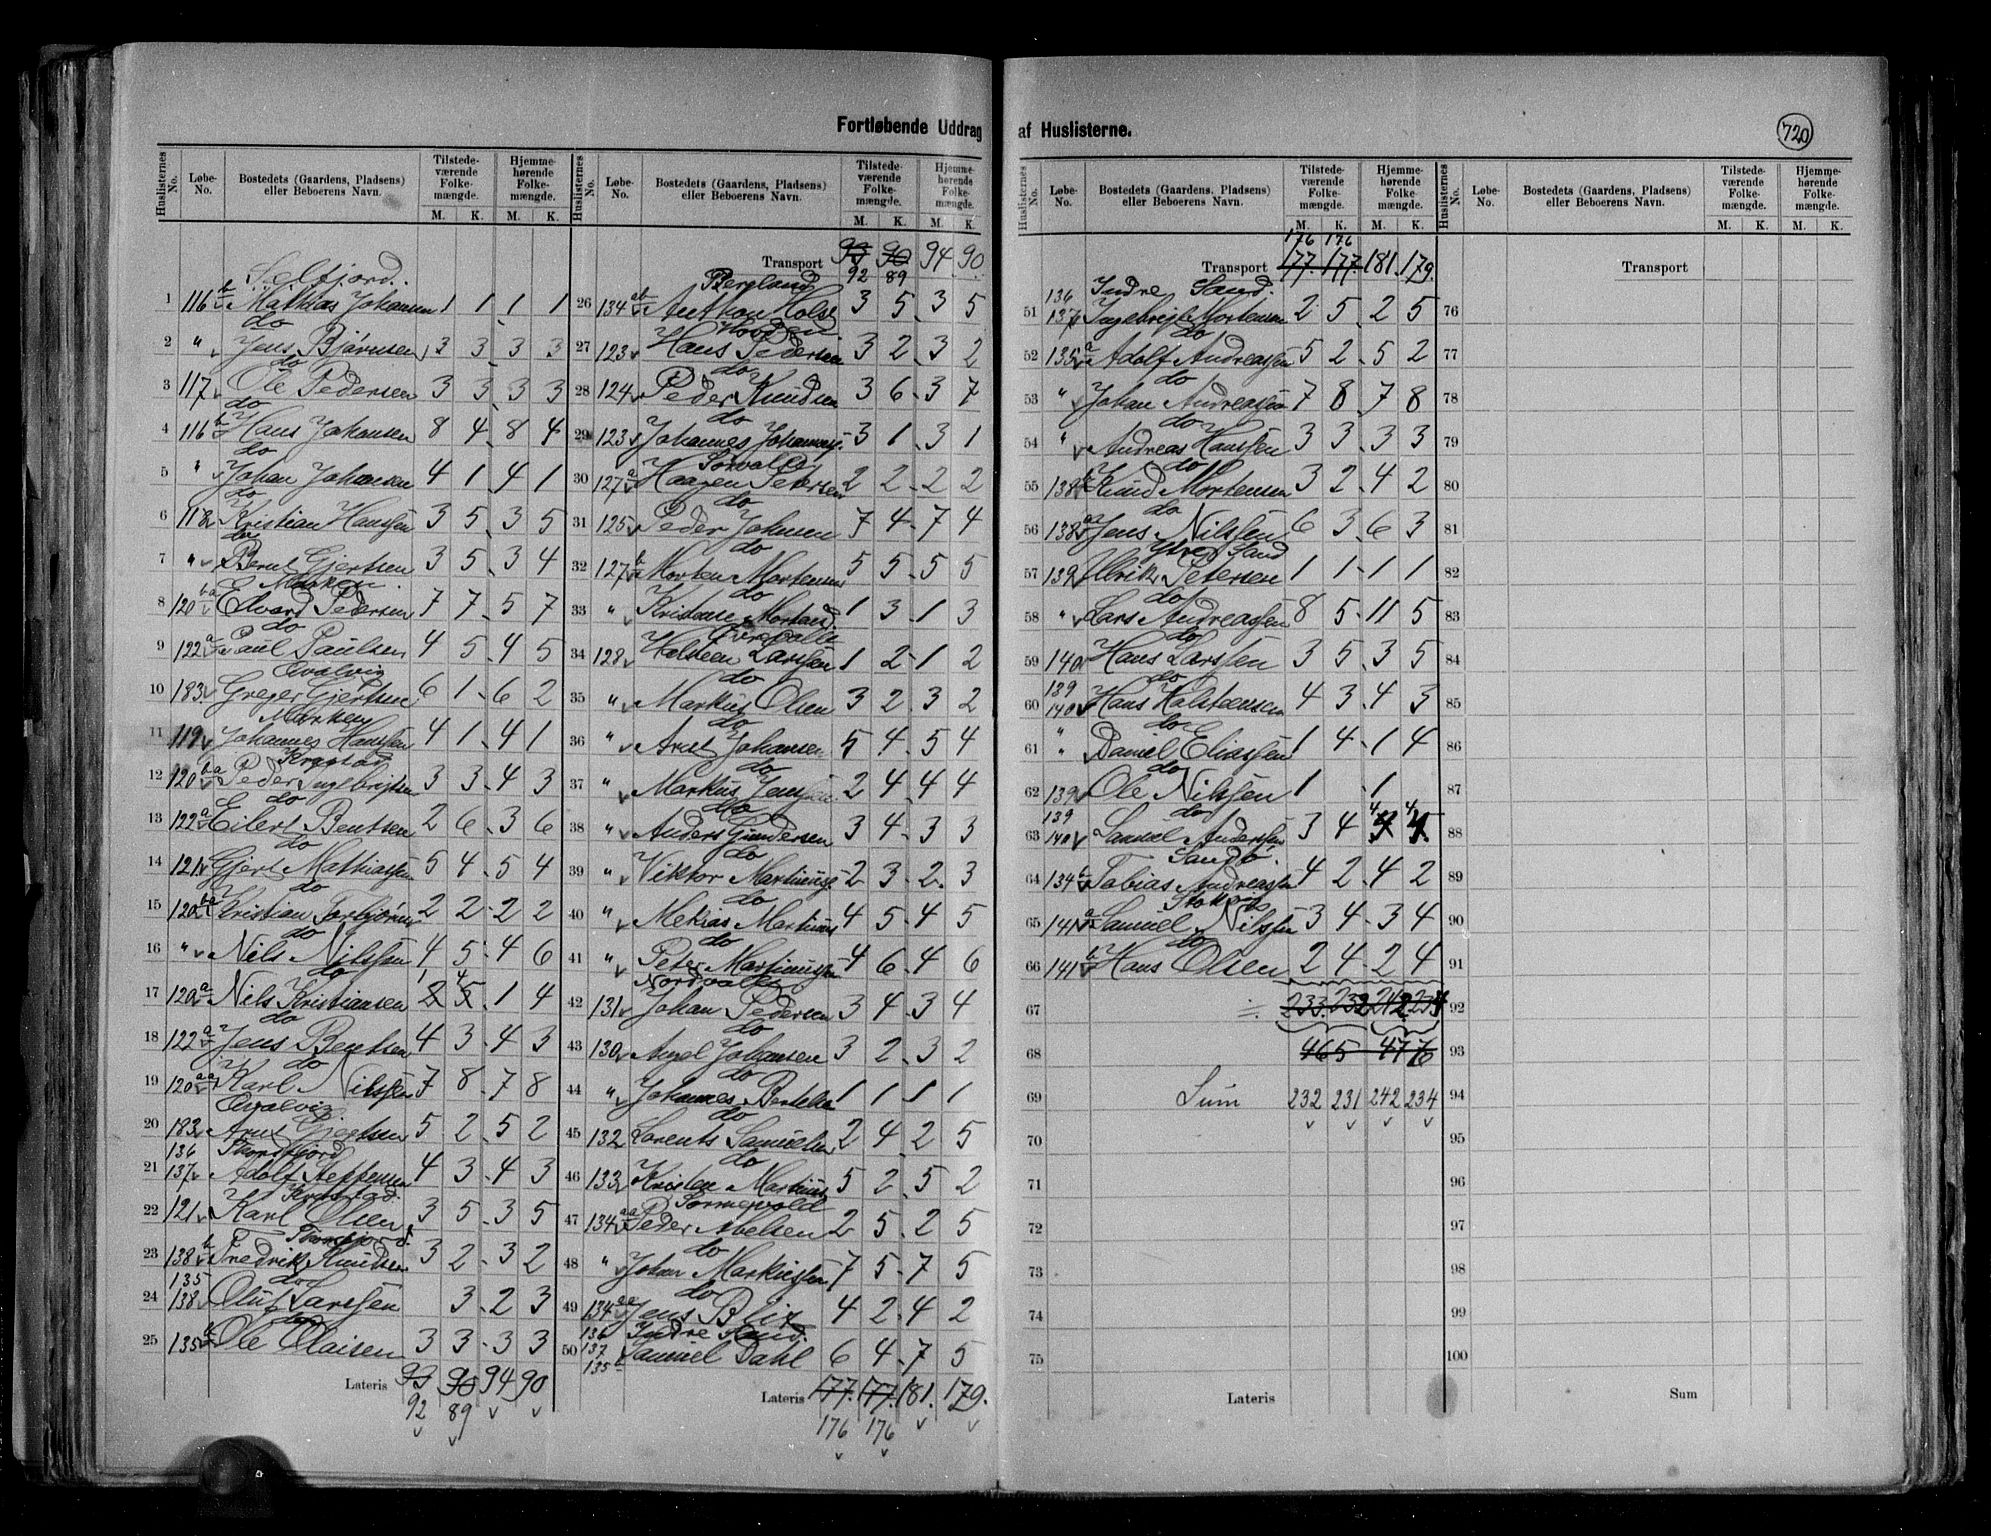 Fortløbende Uddrag af Huslisterne.
720
Huslisternes No. Løbe-No. Bostedets (Gaardens, Pladsens) eller Beboerens Navn. Tilstede-værende Folke-mængde. M. K. Hjemme-hørende Folke-mængde. M. K.
Selfjord.
1 116 b Mathias Johansen 1 1 1 1
do
2 " Jens Bjørnsen 3 3 3 3
do
3 117 Ole Pedersen 3 3 3 3
do
4 116 b Hans Johansen 8 4 8 4
do
5 " Johan Johansen 4 1 4 1
do
6 118 Kristian Hanssen 3 5 3 5
do
7 " Bernt Gjertsen 3 5 3 4
Marken
8 120 ba Edvard Pedersen 7 7 5 7
do
9 122 a Paul Paulsen 4 5 4 5
Qvalvig
10 183 Greger Gjertsen 6 1 6 2
Marken
11 119 Johannes Hanssen 4 1 4 1
Krystad
12 120 ba Peder Ingebrigtsen 3 3 4 3
do
13 122 a Eilert Bentsen 2 6 3 6
do
14 121 Gjert Mathiassen 5 4 5 4
do
15 120 ba Kristian Torbjørns 2 2 2 2
do
16 " Nils Nilssen 4 5 4 6
do
17 120 a Nils Kristiansen 1 4 1 4
do
18 122 a Jens Bentsen 4 3 4 3
do
19 120 aa Karl Nilssen 7 8 7 8
Qvalvig.
20 183 Arnt Gjertsen 5 2 5 2
136 Thorsfjord
21 137 Adolf Steffensen 4 3 4 3
Krystad.
22 121 Karl Olsen 3 5 3 5
Thorsfjord.
23 138 b Fredrik Knudsen 3 2 3 2
135 do
24 138 Oluf Larssen 3 2 3
do
25 135 a Ole Olaisen 3 3 3 3
Lateris 93 90 94 90
92 89
Huslisternes No. Løbe-No. Bostedets (Gaardens, Pladsens) eller Beboerens Navn. Tilstede-værende Folke-mængde. M. K. Hjemme-hørende Folke-mængde. M. K.
Transport 93 90 94 90
92 89
Bergland
26 134 ab Anthon Holst 3 5 3 5
27 123 Hans Pedersen 3 2 3 2
do
28 124 Peder Knudsen 3 6 3 7
do
29 123 Johannes Johannes. 3 1 3 1
Sørvalle
30 127 a Haagen Petersen 2 2 2 2
do
31 125 Peder Johnsen 7 4 7 4
do
32 127 b Morten Mortensen 5 5 5 5
do
33 " Kristense Mortens. 1 3 1 3
34 128 Halsteen Larssen 1 2 1 2
do
35 " Markus Olsen 3 2 3 2
do
36 " Arnt Johansen 5 4 5 4
do
37 " Markus Jenssen 2 4 4 4
do
38 " Anders Gundersen 3 4 3 3
do
39 " Viktor Martinus. 2 3 2 3
do
40 " Mekias Martinus 4 5 4 5
do
41 " Peter Martinussen 4 6 4 6
Nordvalle
42 131 Johan Pedersen 3 4 3 4
do
43 130 Angel Johansen 3 2 3 2
do
44 " Johannes Bertels 1 1 1 1
do
45 132 Lorents Samuelsen 2 4 2 5
do
46 133 Kristen Martinus 5 2 5 2
47 134 aa Peder Abelsen 2 5 2 5
do
48 " Johan Markussen 7 5 7 5
do
49 134 aa Jens Blix 4 2 4 2
136 Indre Sand.
50 137 Samuel Dahl 6 4 7 5
135 b
Lateris 177. 177. 181. 179.
176 176
Huslisternes No. Løbe-No. Bostedets (Gaardens, Pladsens) eller Beboerens Navn. Tilstede-værende Folke-mængde. M. K. Hjemme-hørende Folke-mængde. M. K.
176 176
Transport 177. 177. 181. 179.
136 Indre Sand.
51 137 Ingebrigt Mortensen 2 5 2 5
do
52 135 a Adolf Andreassen 5 2 5 2
do
53 " Johan Andreassen 7 8 7 8
do
54 " Andreas Hanssen 3 3 3 3
do
55 138 Knud Mortensen 3 2 4 2
do
56 138 aa Jens Nilssen 6 3 6 3
Ytre Sand
57 139 Ulrik Petersen 1 1 1 1
do
58 " Lars Andreassen 8 5 11 5
do
59 140 Hans Larssen 3 5 3 5
139 do
60 140 Hans Halsteensen 4 3 4 3
do
61 " Daniel Eliassen 1 4 1 4
do
62 139 Ole Nilssen 1 1
139 do
63 140 Samuel Anderssen 3 4 4 4
Sandø.
64 134 b Tobias Andreassen 4 2 4 2
Stokvig
65 141 a Samuel Nilssen 3 4 3 4
do
66 141 b Hans Olsen 2 4 2 4
67 233. 232 242. 234
68 465 476
69 Sum 232 231 242 234
70
71
72
73
74
75
Lateris
Huslisternes No. Løbe-No. Bostedets (Gaardens, Pladsens) eller Beboerens Navn. Tilstede-værende Folke-mængde. M. K. Hjemme-hørende Folke-mængde. M. K.
Transport
76
77
78
79
80
81
82
83
84
85
86
87
88
89
90
91
92
93
94
95
96
97
98
99
100
Sum